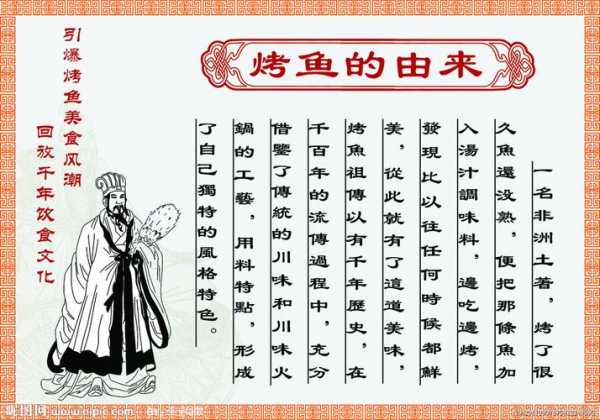 烤鱼的由来
一名非洲土著，烤了很
久魚還没熟，便把那條魚加
入湯汁調味料，邊吃邊烤，
發現比以往任何時候都鮮
美，從此就有了這道美味，
烤魚祖傳以有千年歷史，在
千百年的流傳過程中，充分
借鑒了傳統的川味和川味火
鍋的工藝，用料特點，形成
了自己獨特的風格特色。
引爆烤鱼美食风潮
回放千年饮食文化
昵图网 www.nipic.com